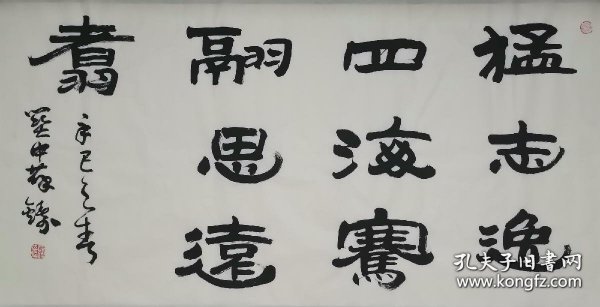 猛志逸
四海騫
翮思遠
翥
辛巳之春
孔夫子旧书网
www.kongfz.com